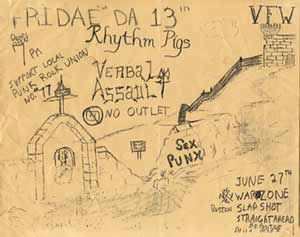 FRIDAE DA 13TH
VFW
7 PM
Rhythm Pigs
SUPPORT LOCAL
PUNK ROCK UNION
NO. 17
VERBAL
ASSAULT
NO OUTLET
SEX
PUNX
JUNE 27TH
WARZONE
BOSTON SLAPSHOT
STRAIGHT AHEAD